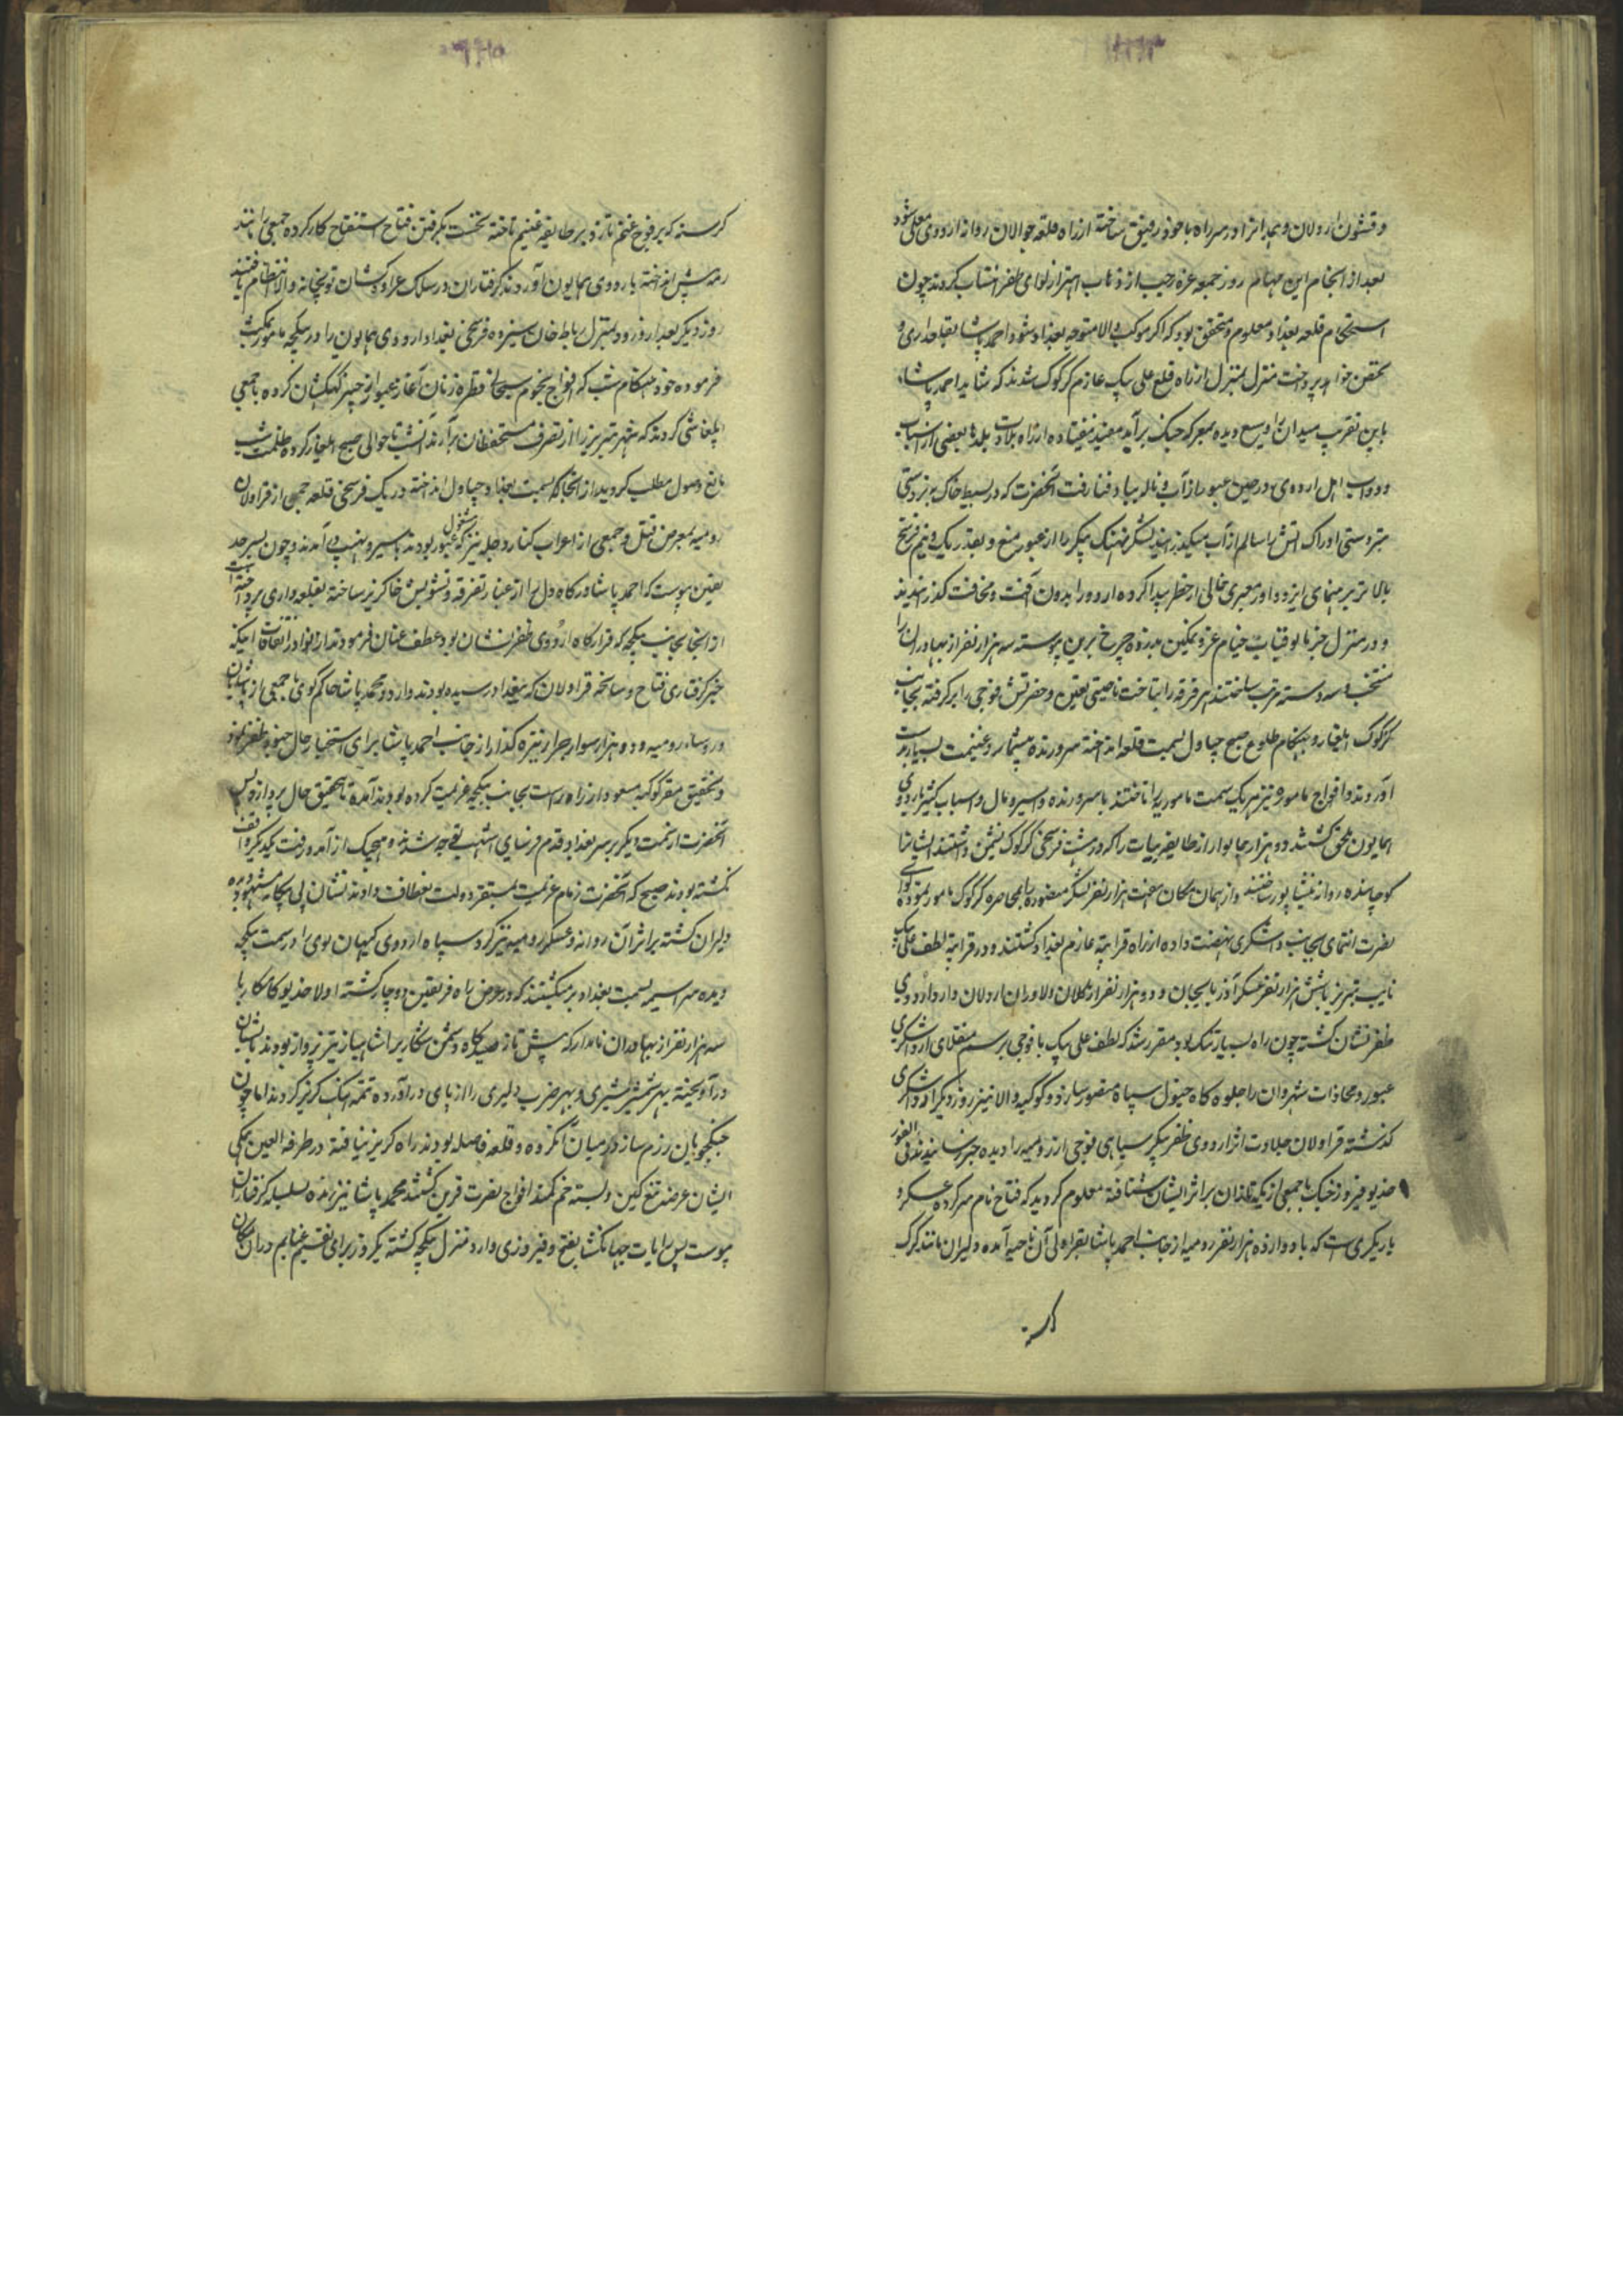 و قشون اردلان و همدانرا در سر راه با خود رفیق ساخته از راه قلعه جوالان روانه اردوی معلی شود
بعد از انجام این مهام روز جمعه غره رجب از ذهاب اهتزاز لوای ظفر انتساب کردند چون
استحکام قلعه بغداد معلوم و متحقق بود که اکر موکب والا متوجه بغداد شود احمد پاشا بقلعداری و
تحصن خواهد پرداخت منزل بمنزل از راه قلع علی بیک عازم کرکوک شدند که شاید احمد پاشا
باین تقریب میدان را وسیع دیده بمعرکه جنک برآید مفید نیفتاده از راه بلد بعضی از اسباب
و دواب اهل اردوی در حین عبور از آب و ناله بباد فنا رفت آنحضرت که در بسیط خاک بزبردستی
آتش را سالم از آب میکذرانید لشکر نهنک پیکر را از عبور منع و بقدر یک و نیم فرسخ
بالاتر برهنمای ایزد داور معبری خالی از خطر پیدا کرده اردو را بدون آفت و مخافت کذرانیدند
و در منزل قباب خیام عز و تمکین بذروه چرخ برین پیوسته سه هزار نفر از بهادران را
منتخب و سه دسته مرتب ساختند هر فرقه را بتاخت ناحیتی تعیین و حضرتش فوجی را برکرفته بجانب
کرکوک ایلغار و بهنکام طلوع صبح چپاول بسمت قلعه انداخته سر و زنده بیشمار و غنیمت بسیار بدست
آوردند و افواج مامور نیز هر یک بسمت مامور به را تاختند با سر و زنده و اسیر و مال و اسباب کثیر باردوی
همایون ملحق کشتند دو هزار خانوار از طایفه بیات را که در هشت فرسخی کرکوک نشیمن داشتند ایشانرا
کوچانیده روانه نیشاپور ساختند و از همان مکان هفت هزار نفر لشکر منصور را بمحاصره کرکوک مامور نموده لوای
نصرت انتمای بجانب داشکری نهضت داده از راه قراتپه عازم بغداد کشتند و در قراتپه لطف علی بیک
نایب تبریز با شش هزار نفر عسکر آذربایجان و دو هزار نفر از دلاوران اردلان وارد اردوی
ظفر نشان کشته چون راه بسیار تنک بود مقرر شد که لطف علی بیک با فوجی برسم منقلای از داشکری
عبور و محاذات شهروان را جلوه کاه خیول سپاه منصور سازد و کوکبه والا نیز روز دیکر از داشکری
کذشته قراولان جلادت اثر اردوی ظفر پیکر سیاهی فوجی از رومیه را دیده خبر رسانیدند فی الفور
خدیو فیروز جنک با جمعی از یکه تازان بر اثر ایشان شتافته معلوم کردید که فتاح نام سرکرده عسکر و
باریکری است که با دوازده هزار نفر رومیه از جانب احمد پاشا بقراولی آن ناحیه آمده دلیران مانند کرک
کرسنه
کرسنه که بر فوج غنم تازد بر طایفه غنیم تاخته نخست بکرفتن فتاح استفتاح کار کرده جمعی را مانند
رمه پیش انداخته باردوی همایون آوردند کرفتاران در سلک عرابه کشان توپخانه والا انتظام یافتند
روز دیکر بعد از ورود بمنزل رباط خان سیزده فرسخی بغداد اردوی همایون را در ینکجه مامور بمکث
فرموده خود هنکام شب که افواج نجوم سبحات قطره زنان آغاز عبور از جسر کهکشان کرده با جمعی
ایلغار کردند که شهر تبریز را از تصرف مستحفظان برآرند آنشب تا حوالی صبح ایلغار کرده ظلمت شب
مانع وصول مطلب کردید از آنجا که بسمت بغداد چپاول انداخته در یک فرسخی قلعه جمعی از قراولان
رومیه بمعرض قتل و جمعی از اعراب کنار دجله نیز که مشغول عبور بودند باسیر و نهب در آمدند و چون بسرحد
یقین پیوست که احمد پاشا درکاه دل را از غبار تفرقه و تشویش خاکریز ساخته بقلعه داری پرداخته است
از آنجا بجانب ینکجه که قرارکاه اردوی ظفر نشان بود عطف عنان فرمودند از نوادر اتفاقات اینکه
خبر کرفتاری فتاح و سانحه قراولان که ببغداد رسیده بود محمد پاشا حاکم کوی با جمعی از پاشایان
و رؤساء رومیه و دو هزار سوار جرار نیزه کذار از جانب احمد پاشا برای استخبار حال جنود ظفر نمود
و تحقیق مقر کوکبه مسعود از راه راست بجانب ینکجه عزیمت کرده بودند آمده تا تحقیق حال پردازند پس
آنحضرت از سمت دیکر بر سر بغداد قدم فرسای اشهب توجه شده و هیچیک از آمد و رفت یکدیکر واقف
نکشته بودند صبح که آنحضرت زمام عزیمت بمستقر دولت انعطاف دادند نشان پی بیکانه مشهود دیده
دلیران کشته بر اثر آن روانه و عسکر رومیه نیز کرد سپاه اردوی کیهان پوی را در سمت ینکجه
دیده سراسیمه بسمت بغداد برمیکشتند که در عرض راه فریقین دوچار کشته اولا خدیو کامکار با
سه هزار نفر از بهادران نامدار که پیش تاز صیدکاه دشمن شکار را شاهباز تیز پرواز بودند با ایشان
درآویخته بهر شمشیر شیری و بهر ضرب دلیری را از پای درآورده تتمه آهنک کریز کردند اما چون
جنکجویان رزم ساز در میان آنکروه و قلعه فاصله بودند راه کریز نیافته در طرفة العین همکی
ایشان عرضه تیغ کین و بسته خم کمند افواج نصرت قرین کشتند محمد پاشا نیز زنده بسلسله کرفتاران
پیوست پس رایات جهانکشا بفتح و فیروزی وارد منزل ینکجه کشته یکروز برای تقسیم غنایم در آن مکان